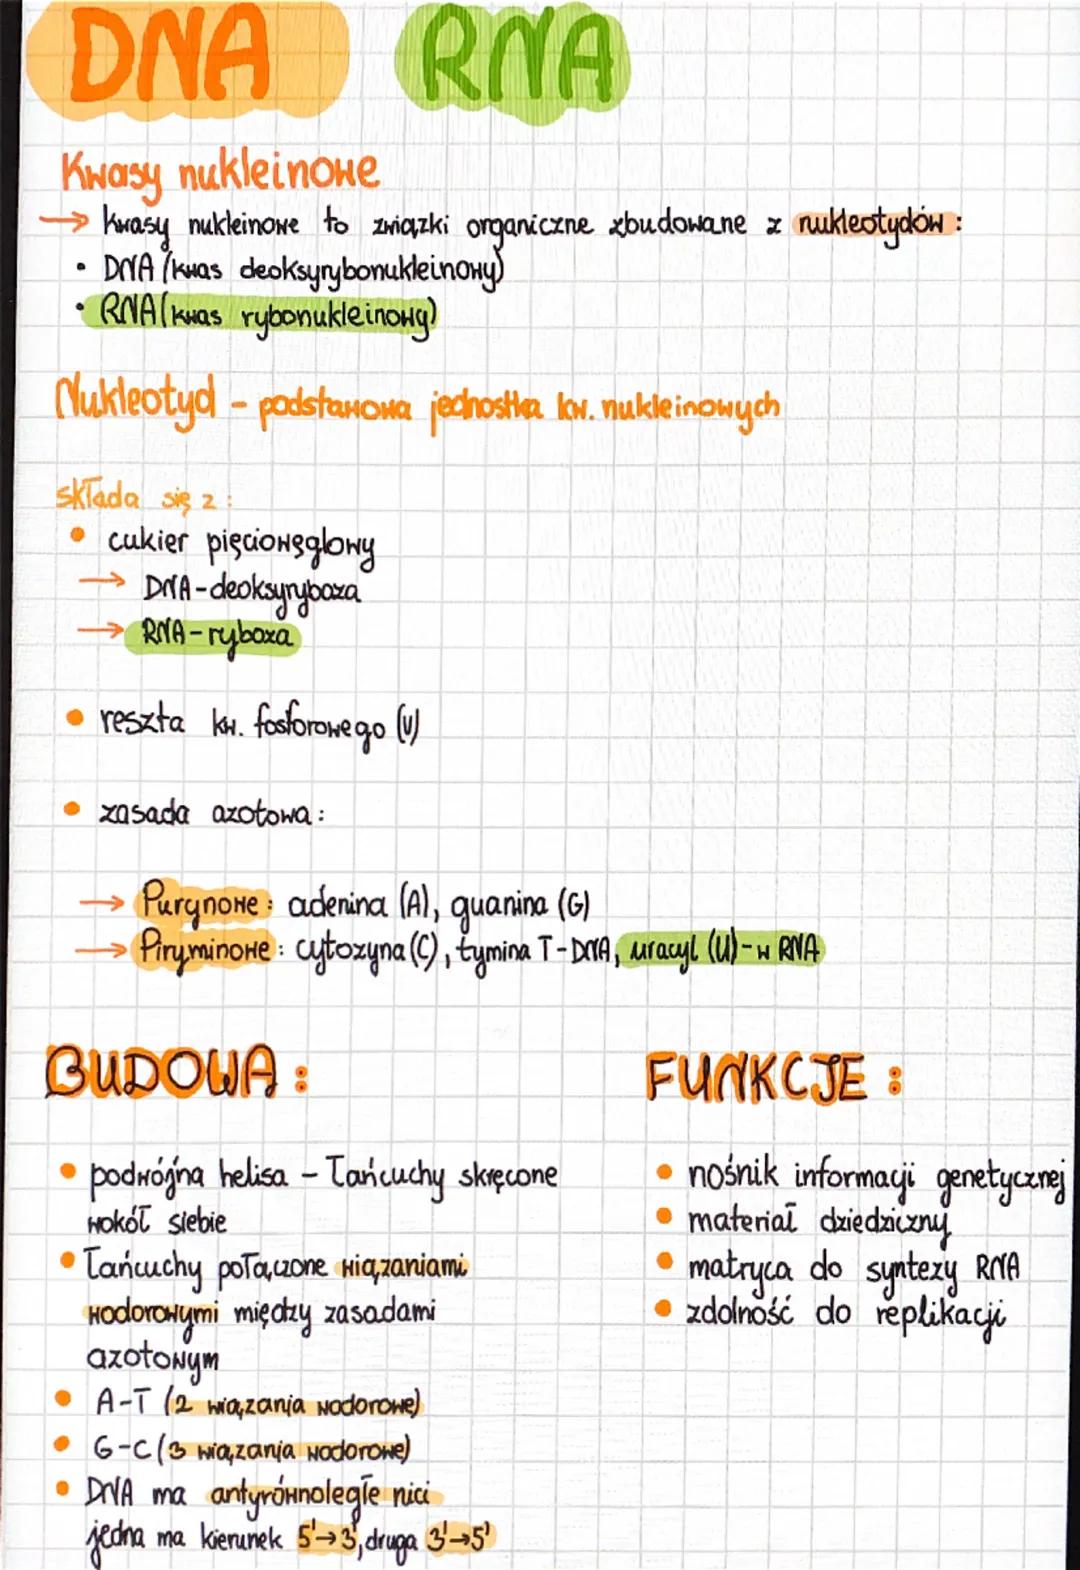 DNA RNA
Kwasy nukleinowe
→ kwasy nukleinowe to związki organiczne zbudowane z nukleotydów:
• DNA (kwas deoksyrybonukleinowy)
• RNA (kwas rybonukleinowy)
Nukleotyd - podstawowa jednostka kw. nukleinowych
składa się z:
• cukier pięciowęglowy
→ DNA-deoksyryboza
→ RNA-ryboza
• reszta kw. fosforowego (V)
• zasada azotowa:
→ Purynowe: adenina (A), guanina (G)
→ Piryminowe: cytozyna (C), tymina T-DNA, uracyl (U)-w RNA
BUDOWA:
• podwójna helisa - łańcuchy skręcone
wokół siebie
• łańcuchy połączone wiązaniami
wodorowymi między zasadami
azotowym
• A-T (2 wiązania wodorowe)
• G-C (3 wiązania wodorowe)
• DNA ma antyrównoległe nici
jedna ma kierunek 5'→3', druga 3'→5'
FUNKCJE:
• nośnik informacji genetycznej
• materiał dziedziczny
• matryca do syntezy RNA
• zdolność do replikacji